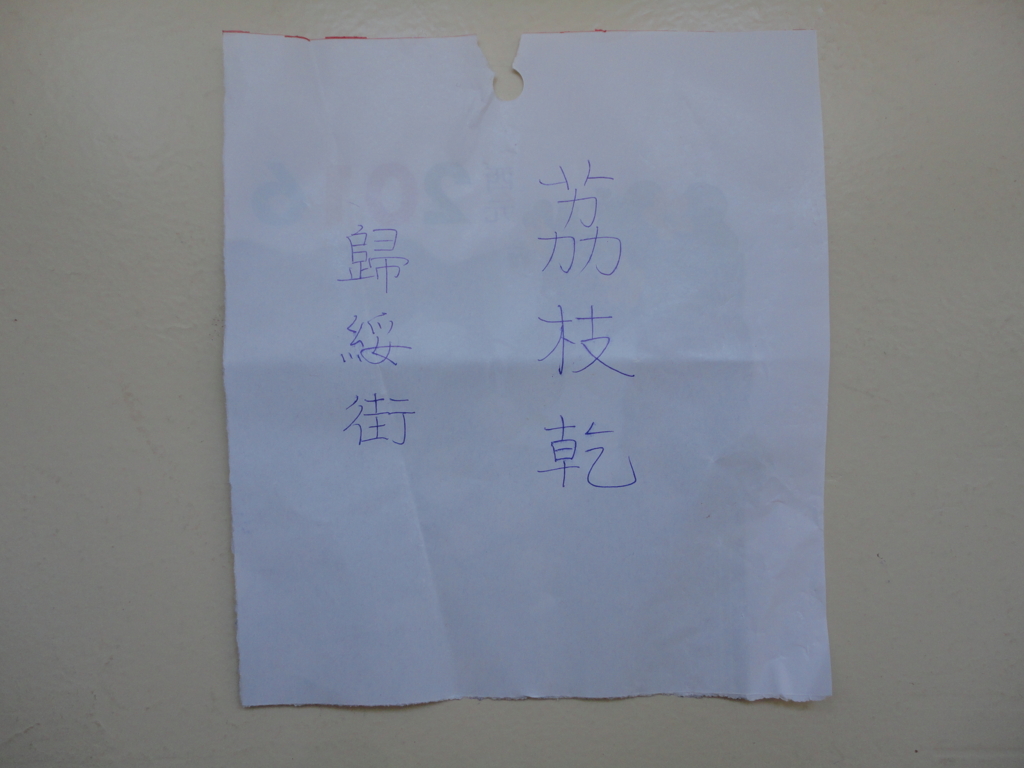 荔枝乾
歸綏街
2016